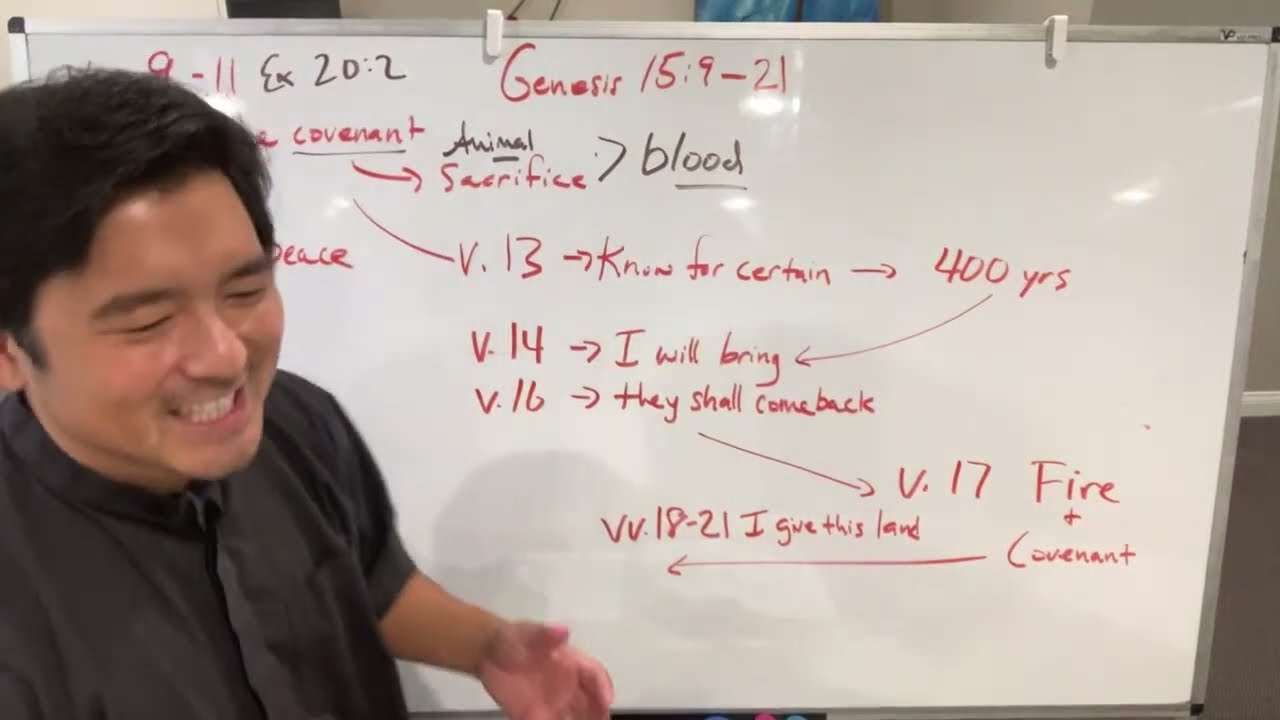 9-11 Ex 20:2 Genesis 15:9-21
covenant Animal Sacrifice > blood
peace
v. 13 → Know for certain → 400 yrs
v. 14 → I will bring
v. 16 → they shall come back
v. 17 Fire
+
vv. 18-21 I give this land
Covenant